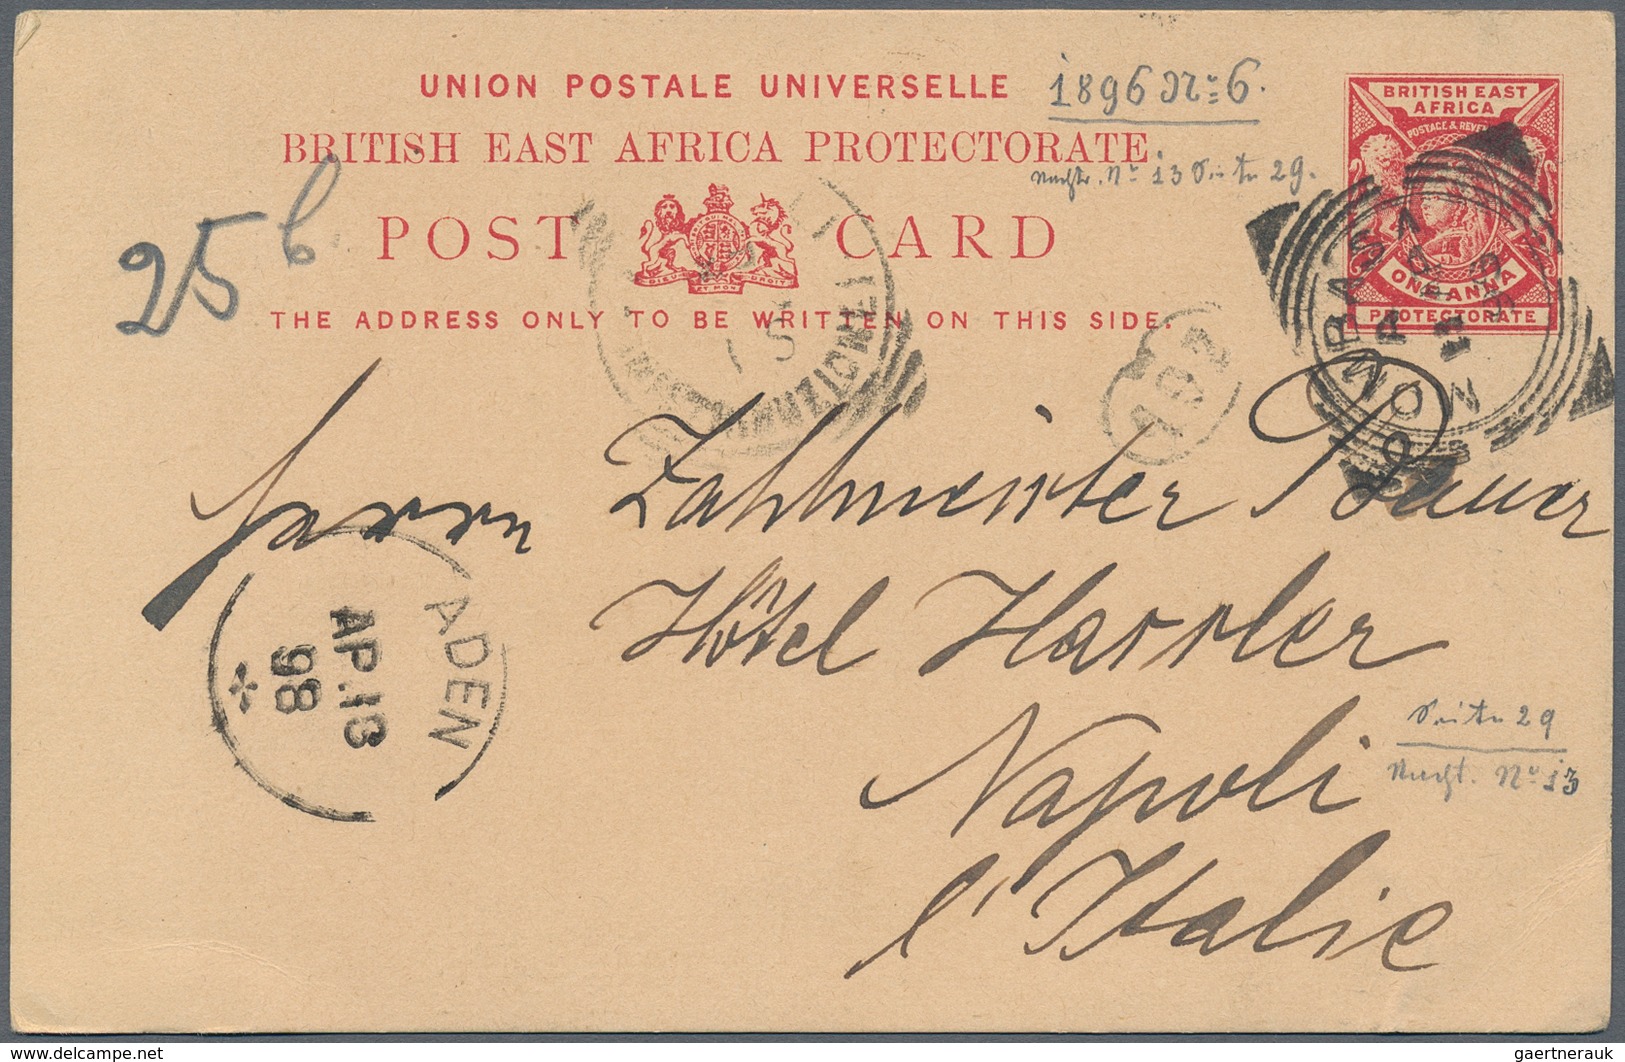 UNION POSTALE UNIVERSELLE
1896 Nr 6.
BRITISH EAST AFRICA PROTECTORATE
Nachtr. Nr 13 Seite 29.
POST CARD
THE ADDRESS ONLY TO BE WRITTEN ON THIS SIDE.
25 b
BRITISH EAST
AFRICA
POSTAGE & REVENUE
ONE ANNA
PROTECTORATE
MOMBASA
AP
98
192
Herrn Zahlmeister Bauer
Hôtel Hassler
Napoli
l'Italie
ADEN
AP.13
98
Seite 29
Nacht. Nr 13
DIEU ET MON DROIT
gaertnerauk